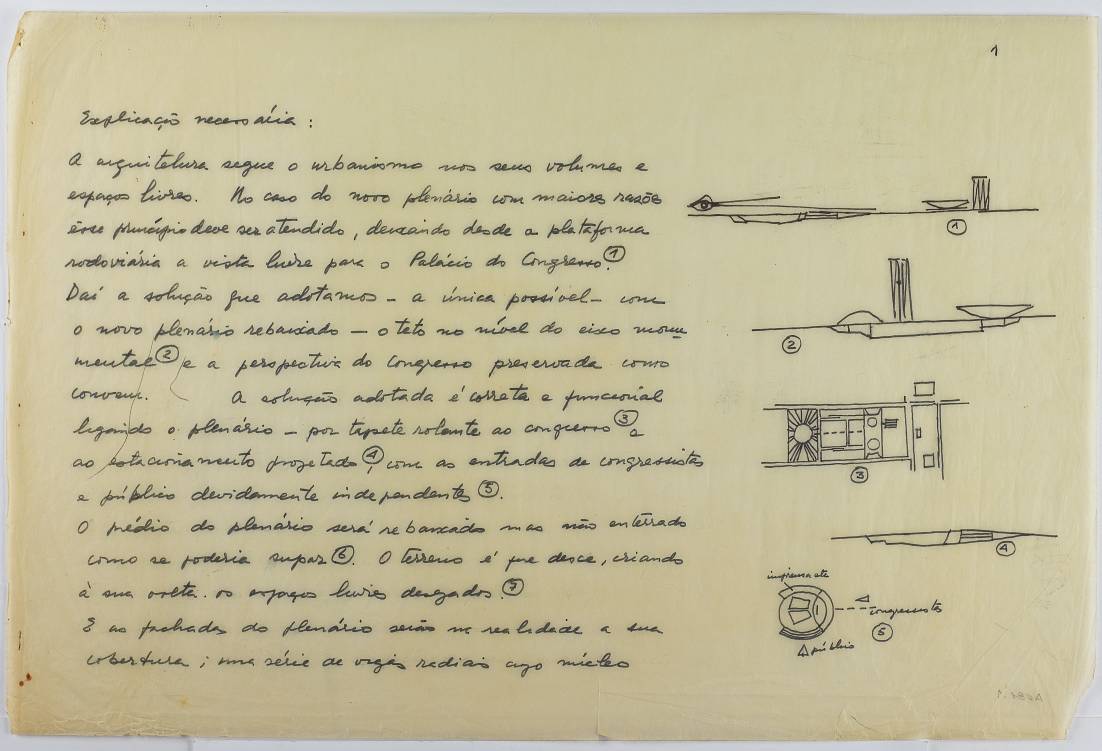 1
Explicação necessária :
A arquitetura segue o urbanismo nos seus volumes e
espaços livres. No caso do novo plenário com maiores razões
êsse princípio deve ser atendido, deixando desde a plataforma
rodoviária a vista livre para o Palácio do Congresso. 1
Daí a solução que adotamos – a única possível – com
o novo plenário rebaixado – o teto no nível do eixo monu
mental 2 e a perspectiva do Congresso preservada como
convem. A solução adotada é correta e funcional
ligando o plenário – por tapete rolante ao congresso 3 e
ao estacionamento projetado 4, com as entradas de congressistas
e público devidamente independentes 5.
O prédio do plenário será rebaixado mas não enterrado
como se poderia supor 6. O terreno é que desce, criando
à sua volta os espaços livres desejados. 7
E as fachadas do plenário serão na realidade a sua
cobertura ; uma série de vigas radiais cujo núcleo
1
2
3
4
imprensa etc
congressistas
5
público